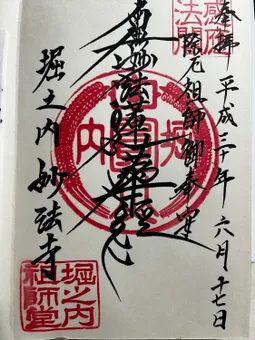 奉拝 平成三十年 六月 十七日
除厄祖師御奉運
南無妙法蓮華経
堀之内妙法寺
感應
法閣
堀
内
堀之内
祖師堂